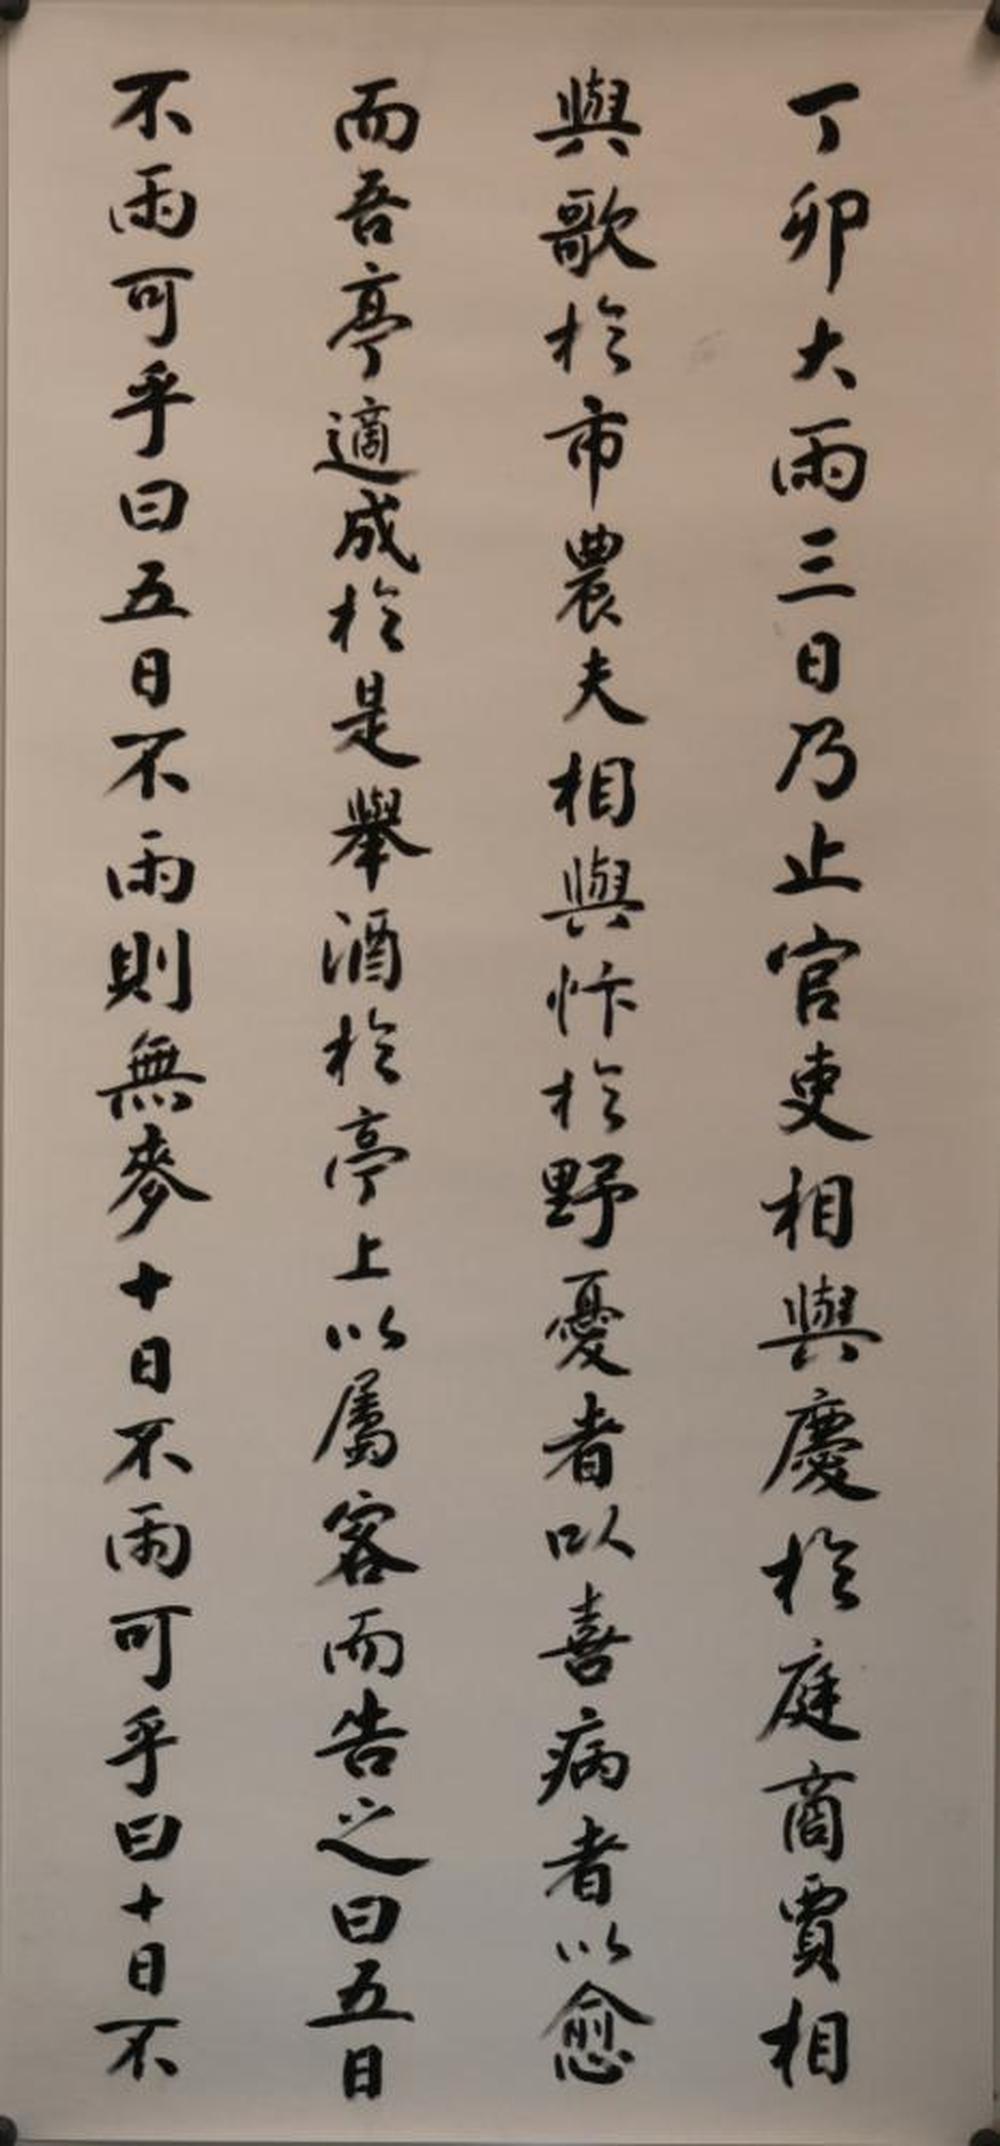 丁卯大雨三日乃止官吏相與慶於庭商賈相
與歌於市農夫相與忭於野憂者以喜病者以愈
而吾亭適成於是舉酒於亭上以屬客而告之曰五日
不雨可乎曰五日不雨則無麥十日不雨可乎曰十日不